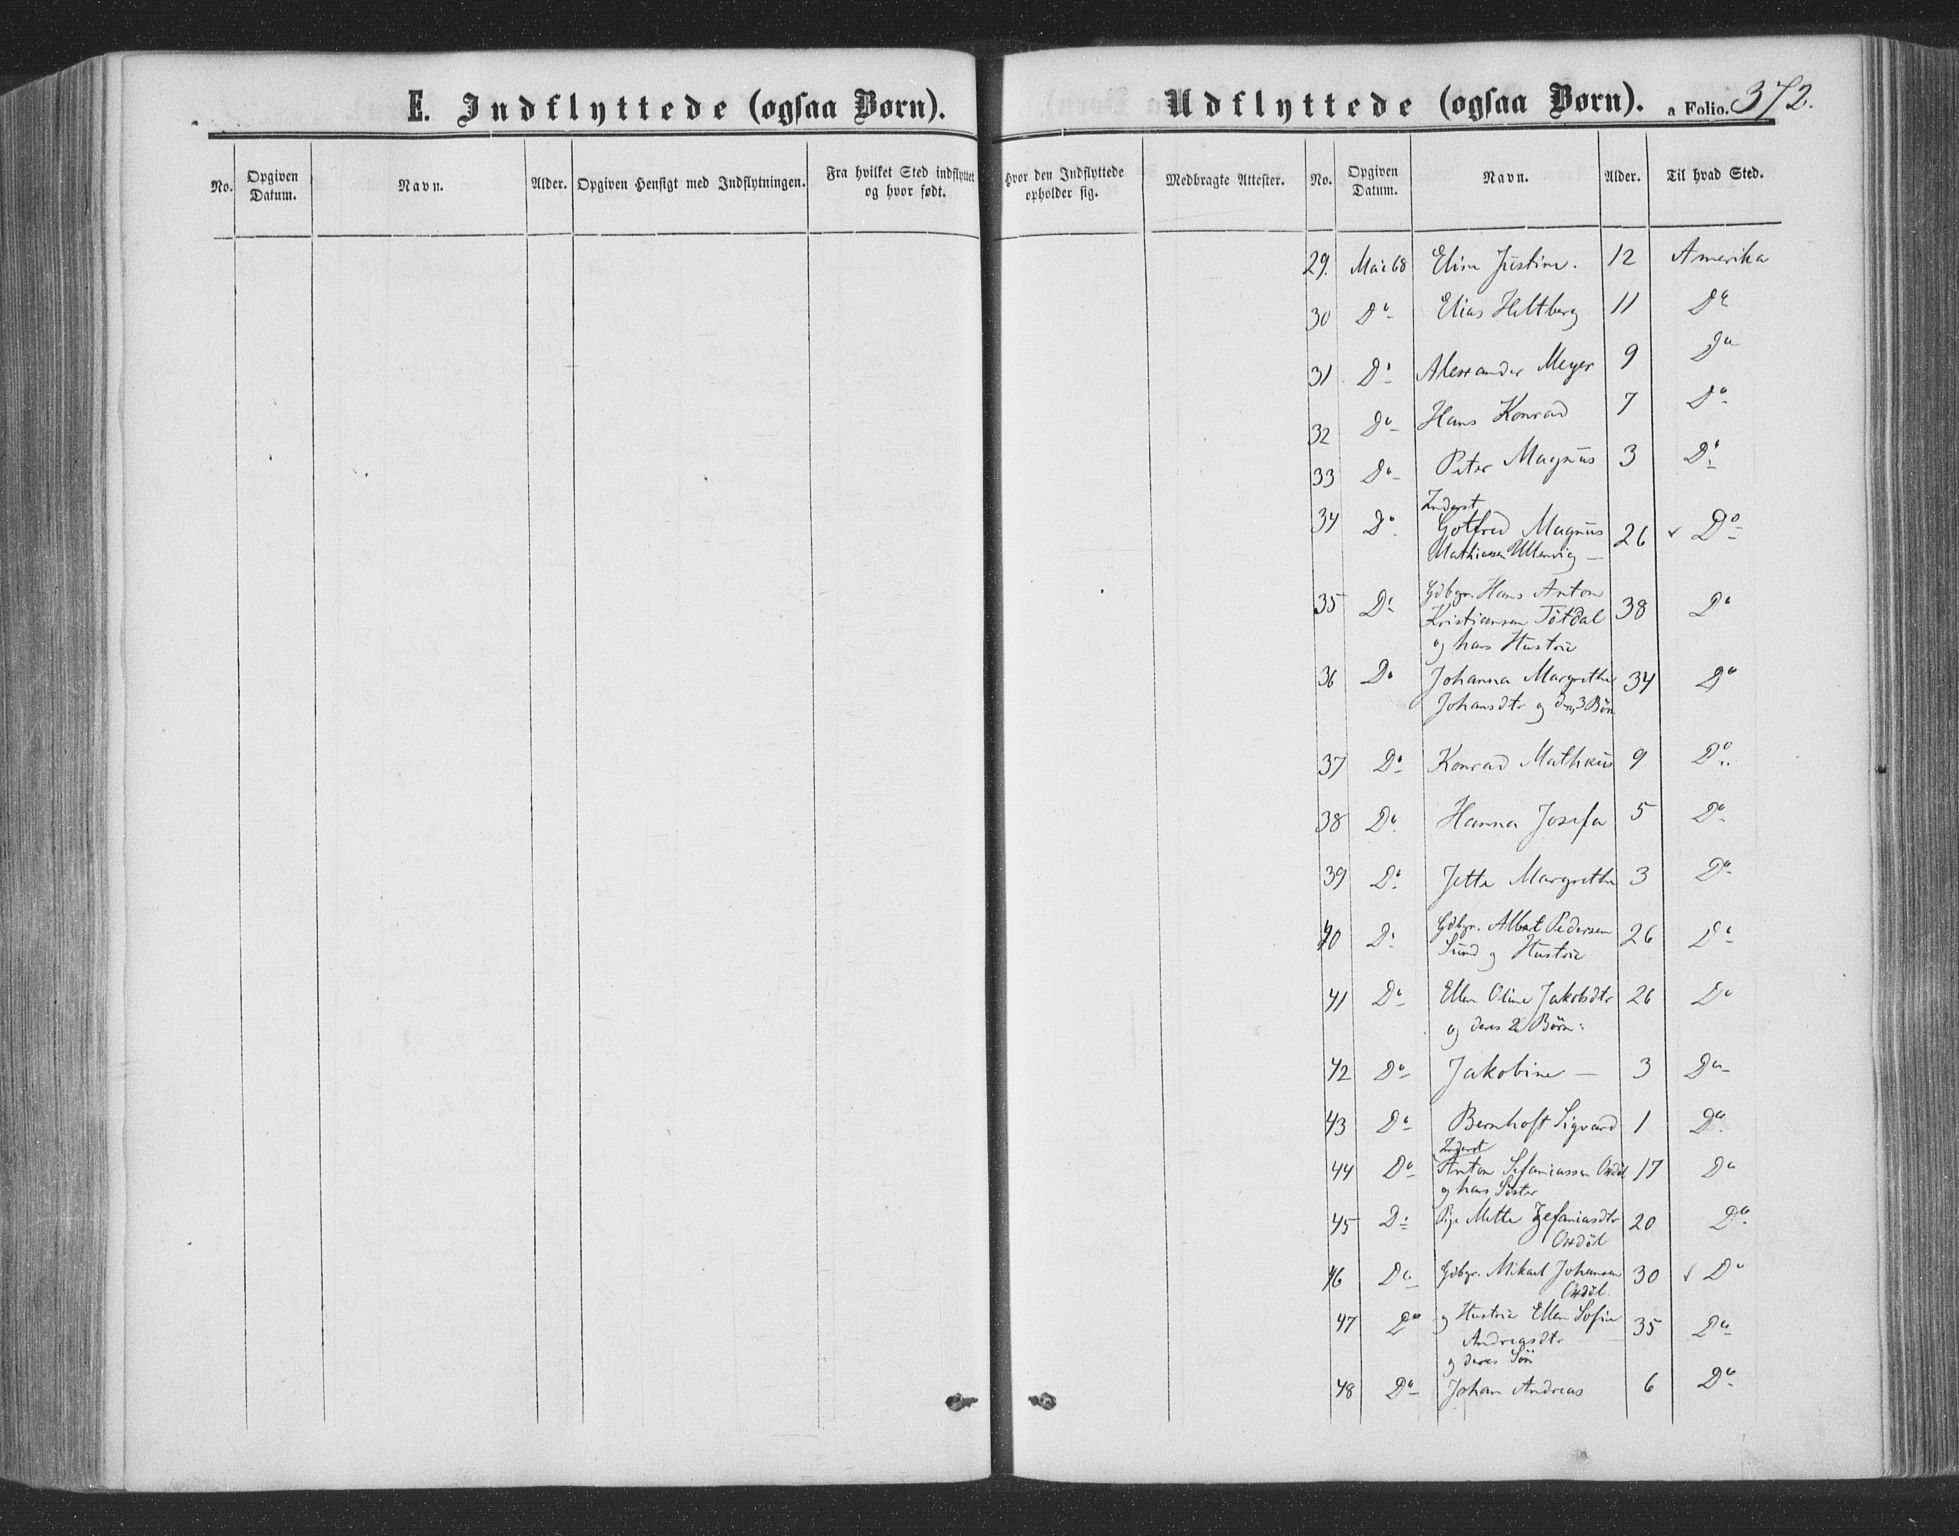 E. Indflyttede (ogsaa Børn).
No. Opgiven Datum. Navn. Alder. Opgiven Hensigt med Indflytningen. Fra hvilket Sted indflyttet og hvor født.
Udflyttede (ogsaa Børn). a Folio. 372.
Hvor den Indflyttede opholder sig. Medbragte Attester. No. Opgiven Datum. Navn. Alder. Til hvad Sted.
29. Mai 68 Elise Justine. 12 Amerika
30 Do Elias Heltberg 11 Do
31 Do Alexander Meyer 9 Do
32 Do Hans Konrad 7 Do
33 Do Peter Magnus 3 Do
Inderst
34 Do Gotfred Magnus 26 Do
Mathiasen Ullenvig
35 Do Gdbgr. Hans Anton
Kristiansen Totdal 38 Do
og hans Hustru
36 Do Johanna Margrethe 34 Do
Johansdtr og deres 3 Børn
37 Do Konrad Mathæus 9 Do
38 Do Hanna Josefa 5 Do
39 Do Jette Margrethe 3 Do
40 Do Gdbgr. Albert Pedersen 26 Do
Sund og Hustru
41 Do Ellen Oline Jakobsdtr 26 Do
og deres 2 Børn:
42 Do Jakobine — 3 Do
43 Do Bernhoft Sigvard 1 Do
Inderst
44 Do Anton Sefaniassen 17 Do
og hans Søster
45 Do Pige Mette Zefaniasdtr 20 Do
46 Do Gdbgr. Mikael Johansen 30 Do
47 Do og Hustru Ellen Sofie 35 Do
Andreasdtr
og deres Søn
48 Do Johan Andreas 6 Do